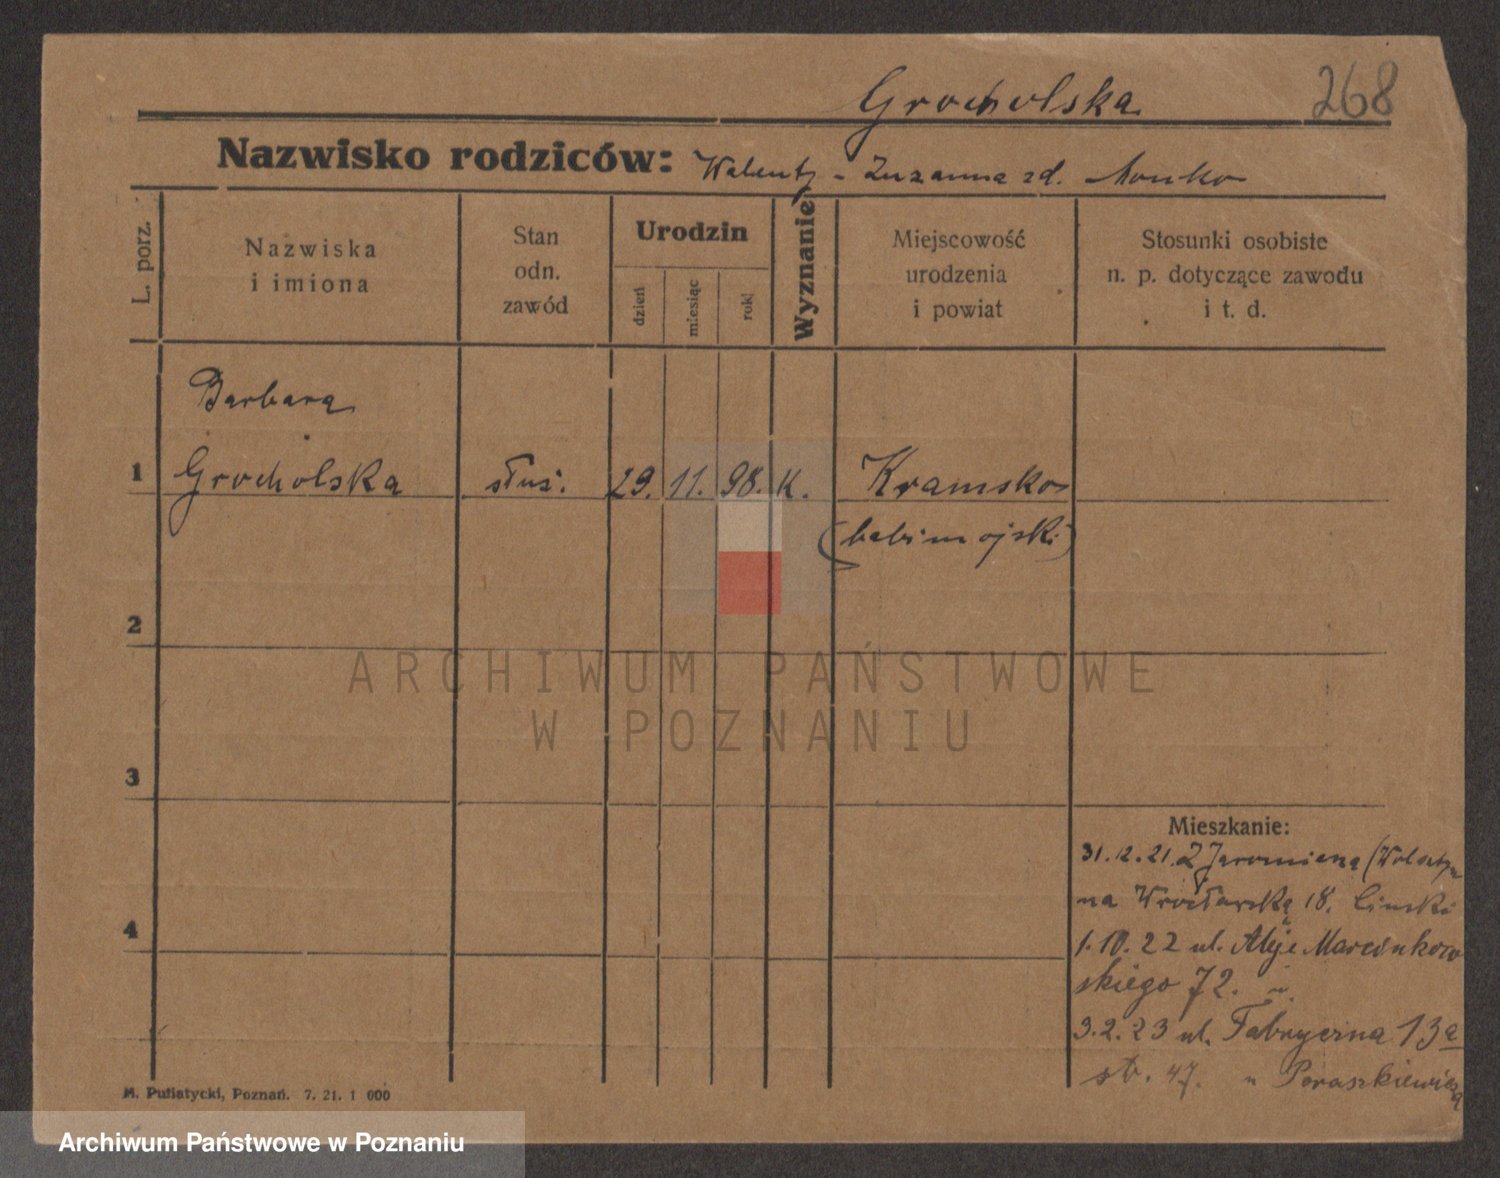 Grocholska
268
Nazwisko rodziców: Walenty - Zuzanna zd. Monko
L. porz.
Nazwiska
i imiona
Stan
odn.
zawód
Urodzin
dzień
miesiąc
rok
Wyznanie
Miejscowość
urodzenia
i powiat
Stosunki osobiste
n. p. dotyczące zawodu
i t. d.
Barbara
1 Grocholska służ. 29. 11. 98. K. Kramsko
(babimojski)
2
ARCHIWUM PAŃSTWOWE
W POZNANIU
3
Mieszkanie:
31.12.21. Z Jaromierza (Wolsztyn
na Wrocławską 18.
4
1.10.22 ul. Aleje Marcinkow
skiego 72.
3.2.23 ul. Fabryczna 13a
str. 47. u Paraszkiewicza
M. Putiatycki, Poznań. 7. 21. 1 000
Archiwum Państwowe w Poznaniu